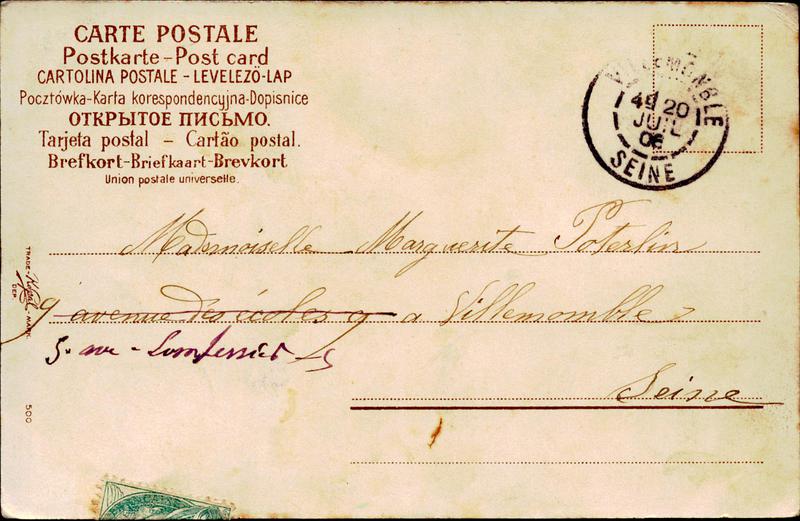 CARTE POSTALE
Postkarte-Post card
CARTOLINA POSTALE - LEVELEZÖ-LAP
Pocztówka-Karta korespondencyjna-Dopisnice
ОТКРЫТОЕ ПИСЬМО.
Tarjeta postal - Cartão postal.
Brefkort-Briefkaart-Brevkort
Union postale universelle.
VILLEMOMBLE
4E 20
JUIL
06
SEINE
Mademoiselle Marguerite Poterlin
9 avenue des écoles 9 a Villemomble
5. ave -
Seine
TRADE - MARK.
DEP.
500